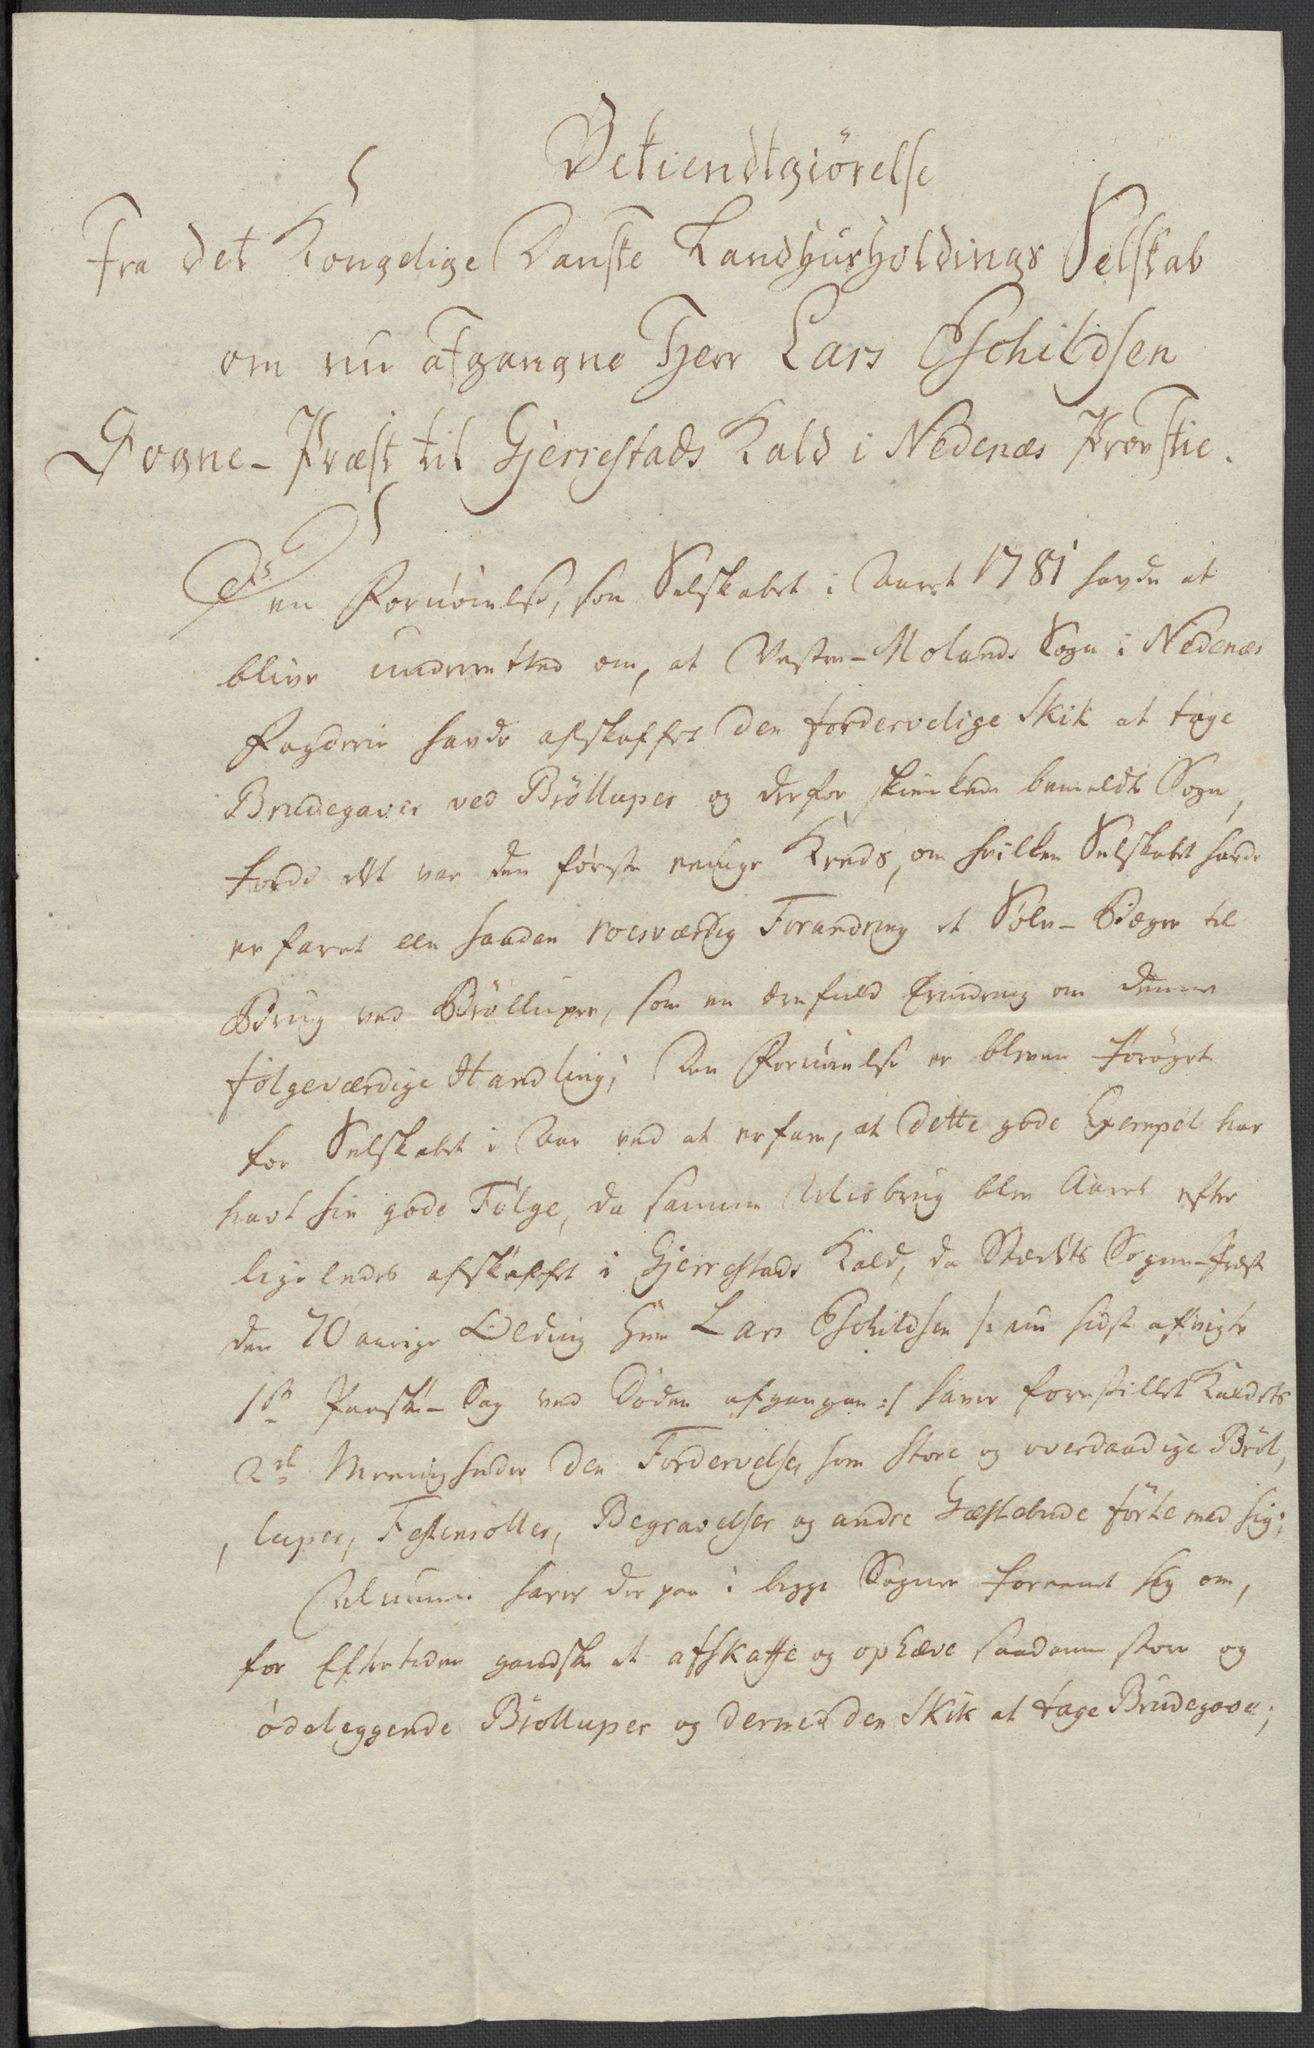 Bekiendtgiörelse
Fra det Kongelige Danske Landhuusholdings Selskab
om nu afgangne Herr Lars Eschildsen
Sogne-Præst til Gjerrestads Kald i Nedenæs Provstie.
Den Fornöielse, som Selskabet i Aaret 1781 havde at
blive underrettet om, at Vester-Molands Sogn i Nedenæs
Fogderie havde afskaffet den fordervelige Skik at tage
Brudegaver ved Bröllupper og derfor skienkede bemeldte Sogn,
fordi det var den förste eenige Kreds, om hvilken Selskabet havde
erfaret en saadan roesværdig Forandring et Sölv-Bæger til
Brug ved Bröllupper, som en ærefuld Erindring om denne
fölgeværdige Handling; Den Fornöielse er bleven foröget
for Selskabet i Aar ved at erfare, at dette gode Exempel har
havt sin gode Fölge, da samme Misbrug blev Aaret efter
ligeledes afskaffet i Gjerrestads Kald, da Stædets Sogne-Præst
den 70 aarige Olding Herr Lars Eschildsen /: nu sidst afvigte
1ste Paaske-Dag ved Döden afgangen :/ haver forestillet Kaldets
2de Meenigheder den Fordervelse, som store og overdaadige Bröl,
, luper, Festensöller, Begravelser og andre Gæstebude förte med sig;
Almuen haver derpaa i begge Sogner foreenet sig om,
for Eftertiden gandske at afskaffe og ophæve saadanne store og
ödeleggende Bröllupper og dermed den Skik at tage Brudegave;